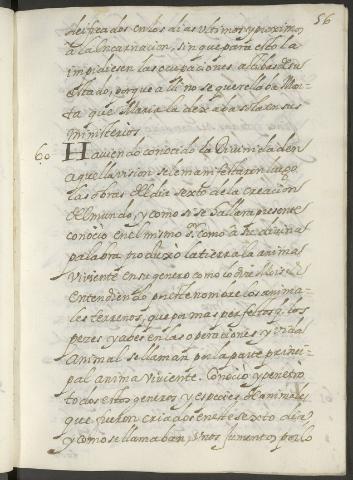 56
deificados en los dias ultimos y proximos
a la Encarnacion, sin que para esto la
impidiesen las ocupaciones activas de su
estado, porque alli no se querellaba Mar-
ta que Maria la dexaba sola en sus
ministerios
60 Haviendo conocido la Divinidad en
aquella vision se le manifestaron luego
las obras del dia sexto de la creacion
del mundo, y como si se hallara presente
conocio en el mismo Sr. como a su divina
palabra produxo la tierra la anima
viviente en su genero como lo dice Moises
entendiendo por este nombre los anima-
les terrenos, que por mas perfectos q. los
peces y aves en las operaciones y vida
animal se llaman por la parte princi-
pal anima viviente. Conocio y penetro
todos estos generos y especies de animales
que fueron criados en este sexto dia
y como se llamaban, unos jumentos por lo